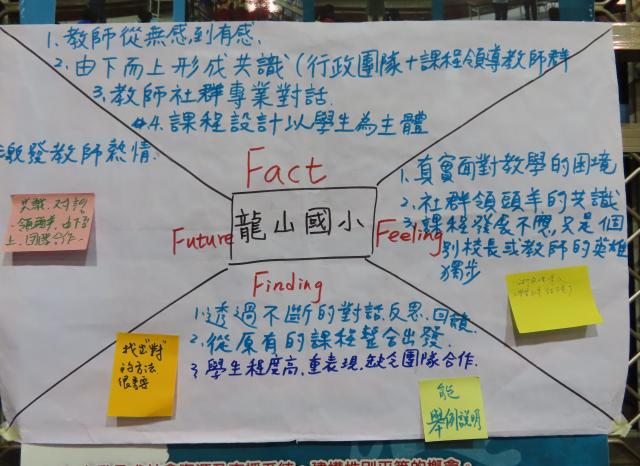 1. 教師從無感到有感.
2. 由下而上形成共識 (行政團隊+課程領導教師群
3. 教師社群專業對話.
#4. 課程設計以學生為主體
激發教師熱情.
Fact
1. 真實面對教學的困境
2. 社群領頭羊的共識
3. 課程發展不應只是個
別校長或教師的英雄
獨步
龍山國小
Future
Feeling
Finding
1. 透過不斷的對話.反思.回饋.
2. 從原有的課程整合出發.
3. 學生程度高,重表現,缺乏團隊合作.
共識.對話
.領頭羊.由下而
上.團隊合作.
找出"對"
的方法
很重要
能
舉例說明